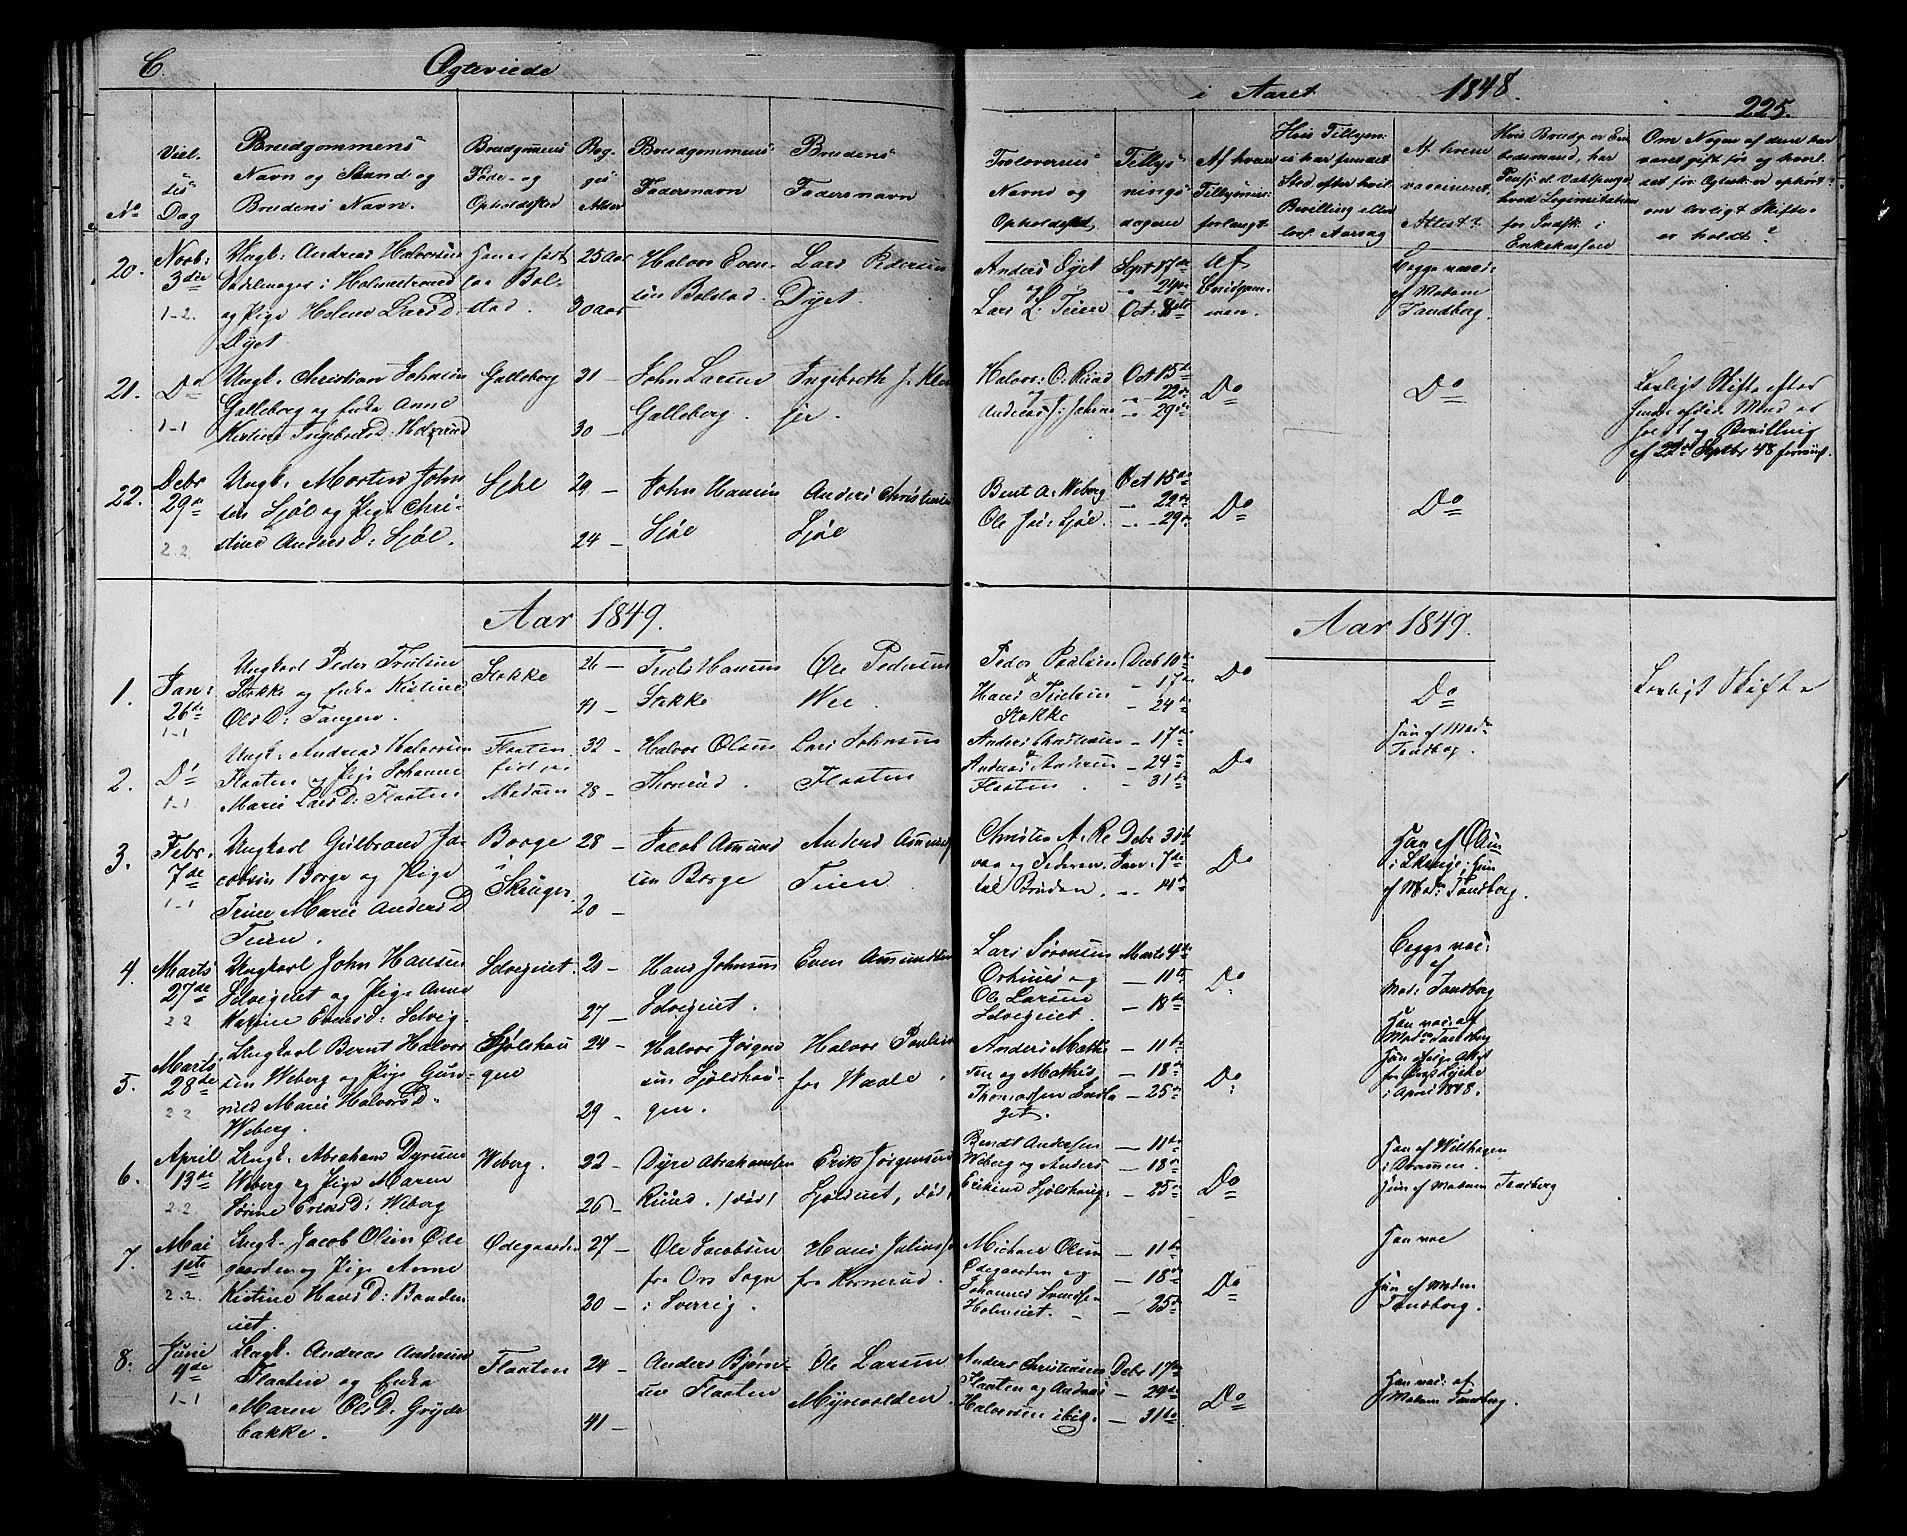 C.
Ægteviede
i Aaret
1848.
225.
No
Viel-
ses
Dag
Brudgommens
Navn og Stand og
Brudens Navn.
Brudgommens
Føde- og
Opholdssted
Beg-
ges
Alder
Brudgommens
Fadersnavn
Brudens
Fadersnavn
Troloverens
Navne og
Opholdssted
Tillys-
nings
dagene
Af hvem
Tillysning
forlangt
Hvis Tillysn:
ei har fundet
Sted efter hvil
Bevilling eller
lovl. Aarsag
Af hvem
vaccineret
Attest?
20.
Novb:
3die
1-2.
Ungk: Andreas Halvorsen
i Holmestrand
og Pige Helene LarsD:
Dyet
25 Aar
30 Aar
Halvor Even-
sen Bolstad.
Lars Pedersen
Dyet.
Anders Dyet
og
Lars L: Teien
Sept 17de
" 24de
Oct: 8de
Af
Brudgom-
men.
Begge vacc:
af Madam
Tandberg.
21.
Do
1-1
Ungk. Christian Johnsen
Galleberg og Enke Anne
Kirstine IngebretsD:
Galleberg
31 —
30 —
John Larsen
Galleberg.
Ingebreth J. Klev
jer.
Halvor: O: Ruud
Oct 15de
" 22de
" 29de
Do
Do
Lovligt Skifte efter
hendes afdøde Mand er
holdt og Bevilling
af 22de Septbr 48
22.
Debr
29de
2-2.
Ungk. Morten John
sen Sjøl og Pige Chri-
stine AndersD: Sjøl.
Sjøl
29 —
24 —
John Hansen
Sjøl
Anders Christensen
Sjøl
Bent A: Weberg
Ole Sjøl.
Oct 15de
— 22de
" - 29de
Do
Do
Aar 1849.
Aar 1849.
1.
Jan:
26de
1-1
Ungkarl Peder Trulsen
Stokke og Enke Kirstine
OlsD: Tangen.
Stokke
26 —
41 —
Truls Hansen
Stokke
Ole Pedersen
Wee.
Peder Paulsen
&
Hans Trulsen
Stokke
Decb 10de
- 17de
- 24de
Do
Do
Lovligt Skifte
2.
Do
1-1
Ungk. Andreas Halvorsen
Flaaten og Pige Johanne
Marie LarsD: Flaaten
Flaaten
32 —
28 —
Halvor Olsen
Thorrud.
Lars Johnsen
Flaaten
Anders
Andreas Andersen
Flaaten.
— 17de
— 24de
- 31te
Do
Hun af Mad:
Tandberg.
3.
Febr.
7de
1-1
Ungkarl Gulbrand Ja-
cobsen Borge og Pige
Trine Marie AndersD
Teien.
Borge
i
Skauger.
28 —
20 —
Jacob Amund
sen Borge
Anders
Teien.
Christen A. Re
vaa og Pedersen
Debr 31te
Janr: 7de
" 14de
Do
Han af
i hun
af Mad: Tandberg.
4.
Marts
27de
2 2
Ungkarl John Hansen
Selvigeiet og Pige Anne
Maxine EvensD: Selvig
Selvigeiet.
21 —
27 —
Hans Johnsen
Selvigeiet.
Even Amundsen
Lars Sørensen
og
Ole Larsen
Selvigeiet.
Marts 4de
— 11te
— 18de
Do
Begge vac:
af
Mad: Tandberg
5.
Marts
28de
2 2
Ungkarl Bernt Halvor
sen Weberg og Pige Gun-
nild Marie HalvorsD.
Weberg.
Sjølshau
gen
24 —
29 —
Halvor Jørgen
sen Sjølshau-
gen.
Halvor Paulsen
fra Waale.
Anders Mathi
sen og Mathis
Thomassen
— 11te
— 18de
— 25de
Do
Han vac: af
Mad: Tandberg
i April 1848.
6.
April
13de
2 2.
Ungk. Abraham Dyresen
Weberg og Pige Maren
Sørine EriksD: Weberg
Weberg.
22 —
26 —
Dyre Abrahamsen
Ruud. (død)
Erik Jørgensen
(død)
Bendt Andersen
Weberg og Anders
Eriksen Sjølshaug:
— 11te
— 18de
— 25de
Do
Han af Wildhagen
i Drammen.
Hun af Madam Tandberg
7.
Mai
1ste
2.2.
Ungk. Jacob Olsen Øde
gaarden og Pige Anne
Kirstine HansD: Banden
eiet.
Ødegaarden
27 —
20 —
Ole Jacobsen
fra Ors Sogn
i Sverrig.
Hans Juliussen
fra Kornerud.
Michael Olsen
Ødegaarden og
Johannes
Holmeiet.
— 11te
— 18de
— 25de
Do
Han vac
Hun af Madm
Tandberg.
8.
Junii
4de
1-1
Ungk. Andreas Andersen
Flaaten og Enke
Maren OlsD. Gryde
bakke.
Flaaten
24 —
41 —
Anders Bjørn-
sen Flaaten
Ole Larsen
Myrevolden.
Anders Christensen
Flaaten og Andreas
Halvorsen ibid.
Debr 17de
— 24de
— 31te
Do
Han vac: af
Madam Tandberg.